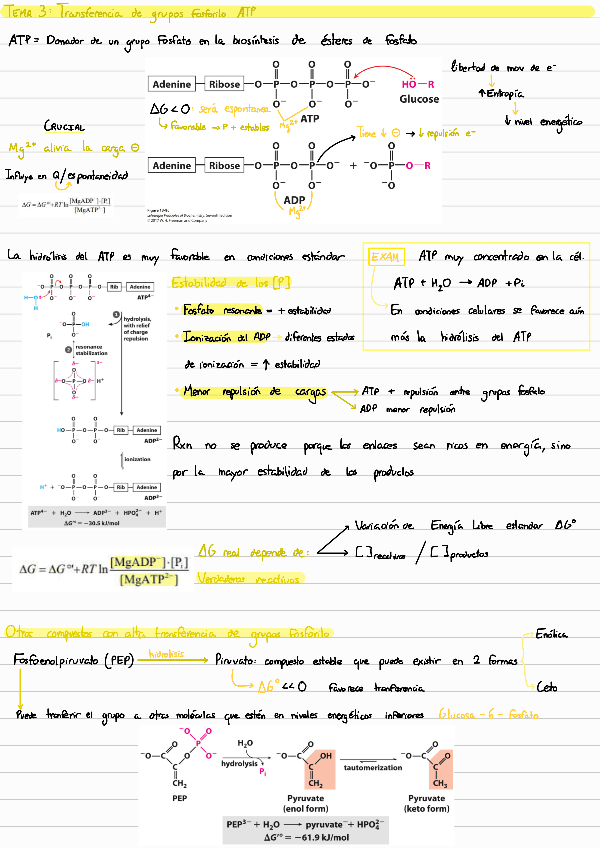 TEMA 3: Transferencia de grupos fosforilo ATP
ATP = Donador de un grupo Fosfato en la biosíntesis de ésteres de fosfato
Adenine Ribose O P O P O P O⁻ HÖ R
Glucose
ATP
ΔG < 0: será espontanea
↳ Favorable → P + estables
Mg²⁺
libertad de mov de e⁻
↑ Entropía
↓ nivel energético
CRUCIAL
Mg²⁺ alivia la carga ⊖
Influye en Q/espontaneidad
ΔG = ΔG'° + RT ln [MgADP⁻]·[Pi] / [MgATP²⁻]
Tiene ↓ ⊖ → ↓ repulsión e⁻
Adenine Ribose O P O P O⁻ + ⁻O P O R
ADP
Mg²⁺
Lehninger Principles of Biochemistry, Seventh Edition
© 2017 W. H. Freeman and Company
La hidrólisis del ATP es muy favorable en condiciones estándar
EXAM ATP muy concentrado en la cél.
ATP + H₂O → ADP + Pi
En condiciones celulares se favorece aún
más la hidrólisis del ATP
Rib Adenine
ATP⁴⁻
1 hydrolysis, with relief of charge repulsion
Pi
2 resonance stabilization
HO P O P O Rib Adenine
ADP²⁻
ionization
H⁺ + ⁻O P O P O Rib Adenine
ADP³⁻
ATP⁴⁻ + H₂O → ADP³⁻ + HPO₄²⁻ + H⁺
ΔG'° = −30.5 kJ/mol
Estabilidad de los [P]
• Fosfato resonante = + estabilidad
• Ionización del ADP → diferentes estados
de ionización = ↑ estabilidad
• Menor repulsión de cargas
ATP + repulsión entre grupos fosfato
ADP menor repulsión
Rxn no se produce porque los enlaces sean ricos en energía, sino
por la mayor estabilidad de los productos
ΔG = ΔG°' + RT ln [MgADP⁻]·[Pi] / [MgATP²⁻]
ΔG real depende de:
Variación de Energía Libre estándar ΔG°
[ ] reactivos / [ ] productos
Verdaderos reactivos
Otros compuestos con alta transferencia de grupos fosforilo
Fosfoenolpiruvato (PEP) hidrólisis → Piruvato: compuesto estable que puede existir en 2 formas
Enólica
Ceto
↳ ΔG° << 0 Favorece tranferencia
Puede tranferir el grupo a otras moléculas que estén en niveles energéticos inferiores Glucosa-6-fosfato
PEP
H₂O
hydrolysis
Pi
Pyruvate
(enol form)
tautomerization
Pyruvate
(keto form)
PEP³⁻ + H₂O → pyruvate⁻ + HPO₄²⁻
ΔG'° = −61.9 kJ/mol